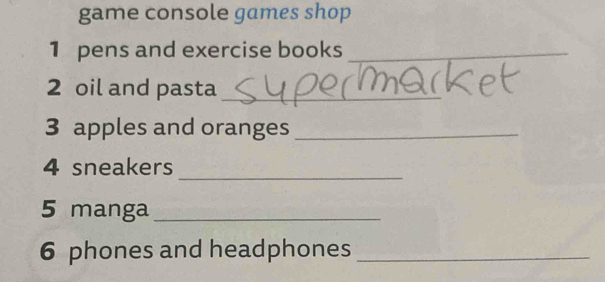 game console games shop
1 pens and exercise books
2 oil and pasta supermarket
3 apples and oranges
4 sneakers
5 manga
6 phones and headphones